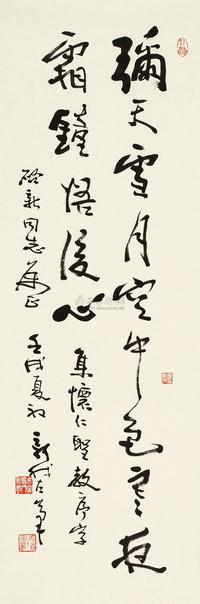 彌天雪月空中色寒夜
霜鐘悟後心
集懷仁聖教序字
新同志正
壬戌夏初新我左筆